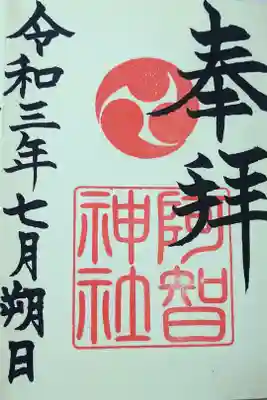 奉拝
阿智神社
令和三年七月朔日